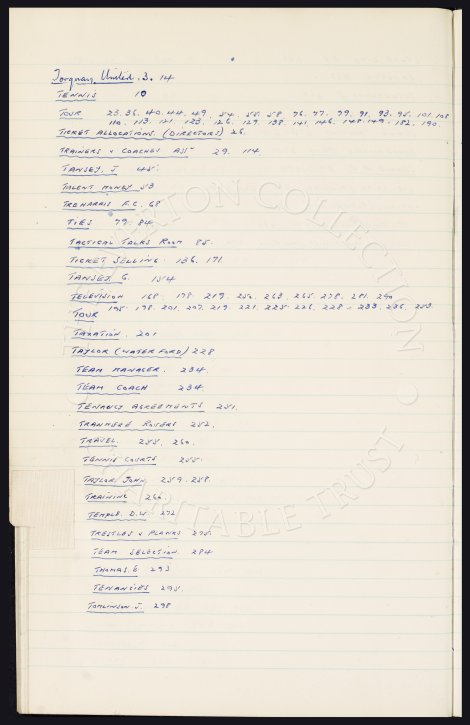 Torquay United. 3. 14
TENNIS 10
TOUR 23. 36. 40. 44. 49. 54. 55. 58. 76. 77. 79. 91. 93. 95. 101. 108
110. 113. 121. 123. 126. 129. 138. 141. 146. 148. 149. 182. 190.
TICKET ALLOCATIONS (DIRECTORS) 26.
TRAINERS & COACHES ASSN 29. 114.
TANSEY, J 45.
TALENT MONEY 53
TREHARRIS F.C. 68
TIES 79. 84.
TACTICAL TALKS ROOM 85.
TICKET SELLING. 136. 171.
TANSEY, G. 154
TELEVISION 168. 178. 219. 250. 263. 265. 278. 281. 290
TOUR 195. 198. 201. 207. 219. 221. 225. 226. 228. 233. 236. 253.
TAXATION. 201
TAYLOR (WATERFORD) 228
TEAM MANAGER. 234.
TEAM COACH 234.
TENANCY AGREEMENTS 251.
TRANMERE ROVERS 252.
TRAVEL 255. 260.
TENNIS COURTS 255.
TAYLOR, JOHN. 257. 258.
TRAINING 266.
TEMPLE. D.W 272
TRESTLES & PLANKS 275.
TEAM SELECTION. 284
THOMAS. E. 293
TENANCIES 295.
TOMLINSON. J. 298
COLLECTION
CHARITABLE TRUST